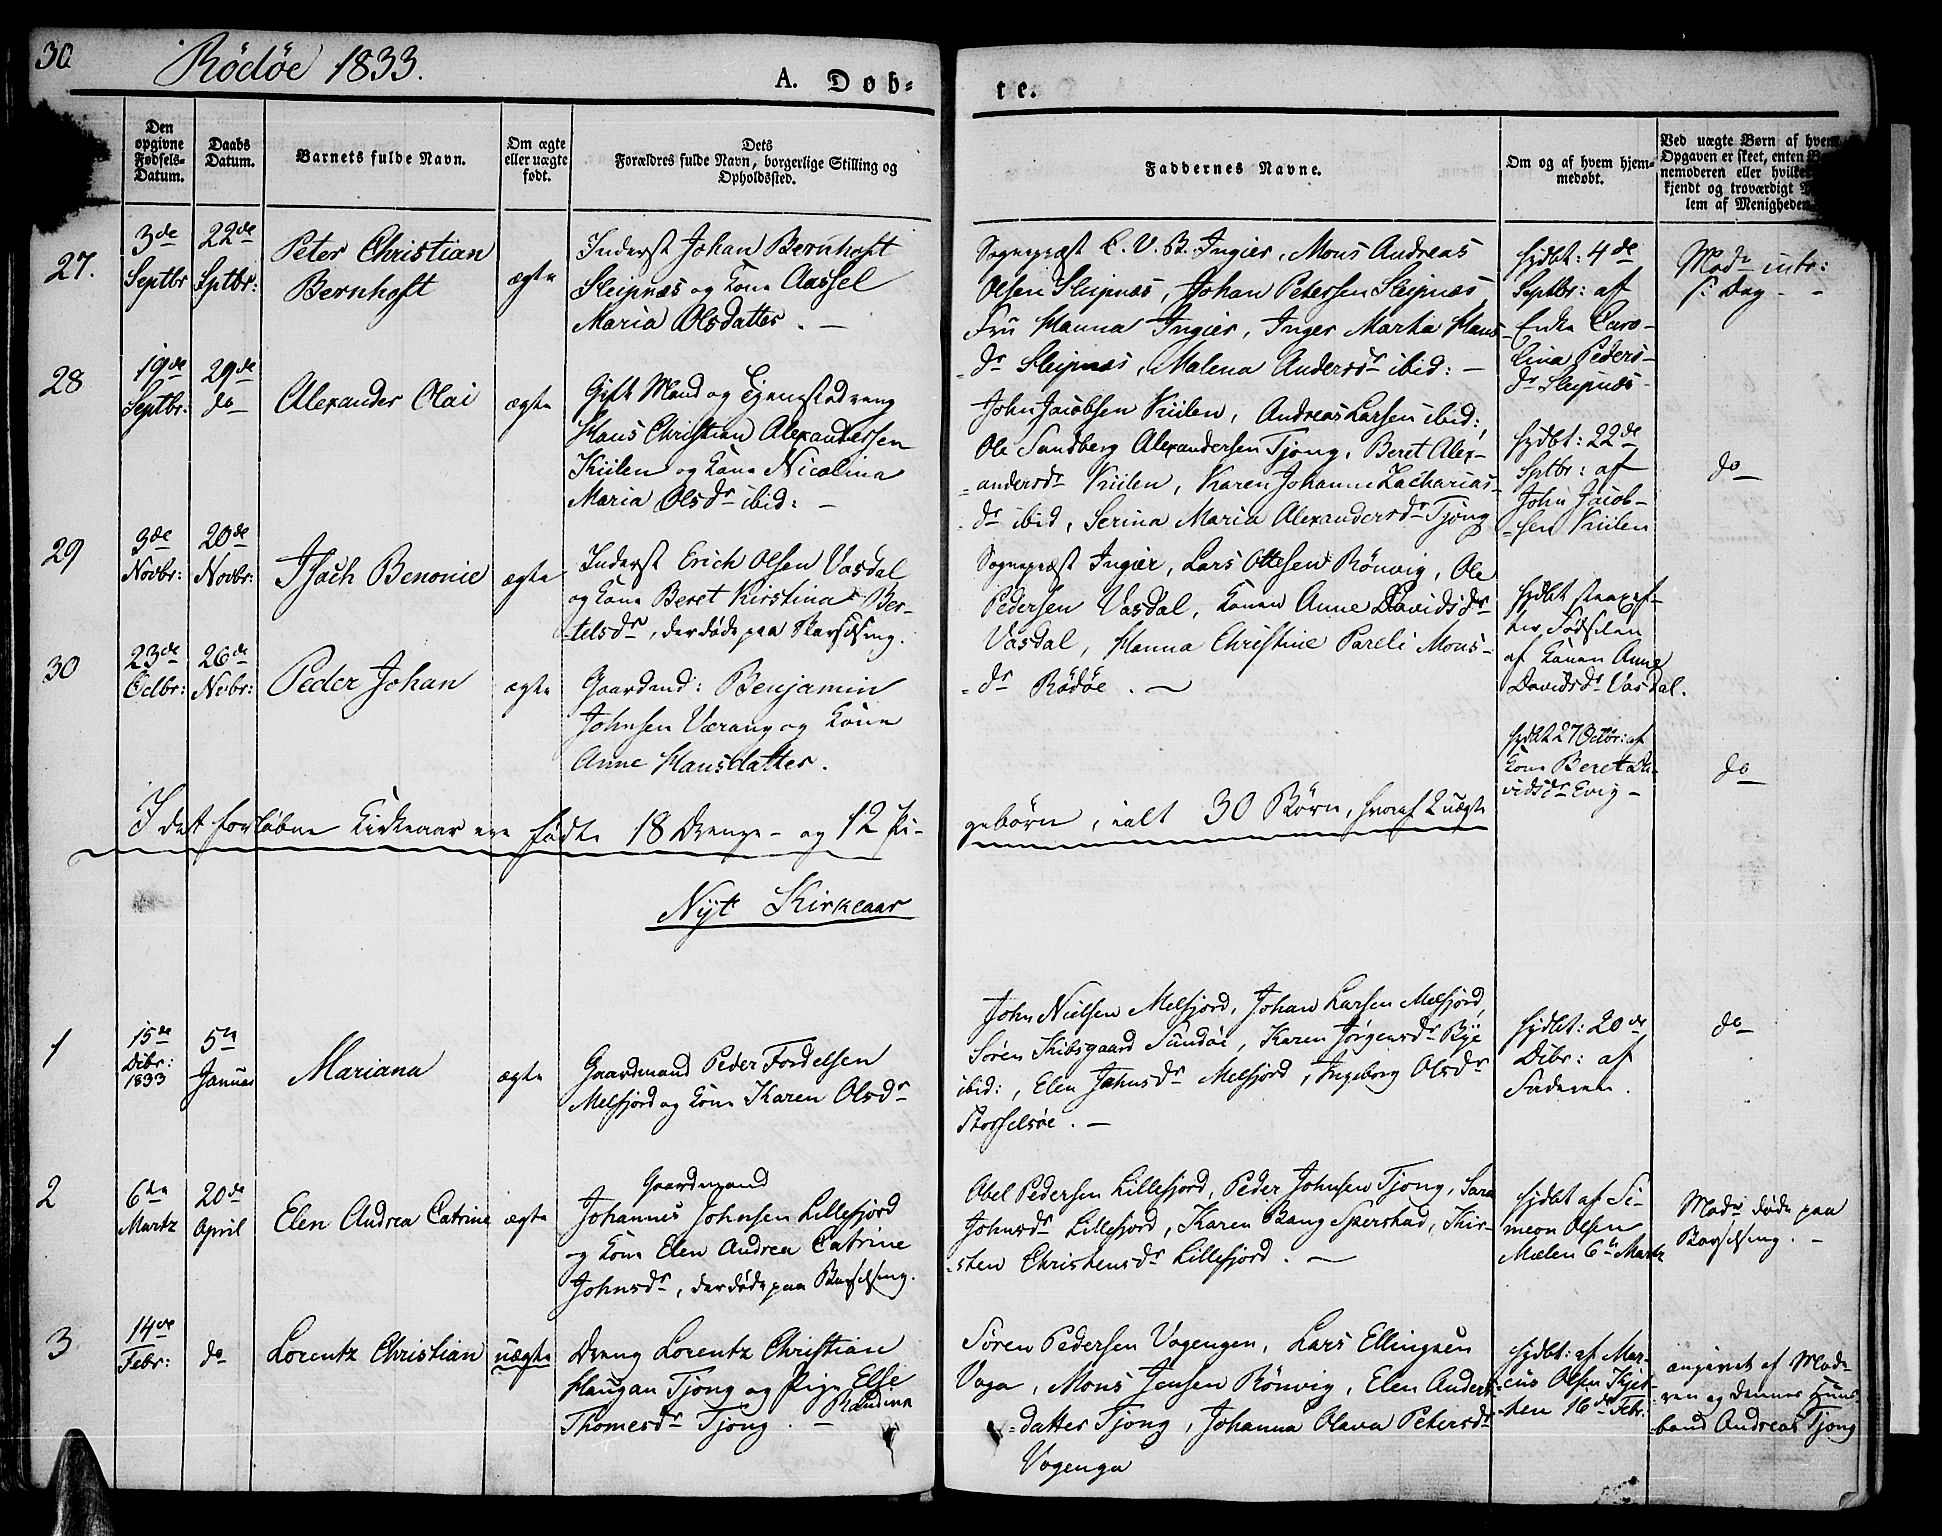 30
Rödöe 1833.
A. Døb-
te.
Den opgivne Fødsels-Datum.
Daabs Datum.
Barnets fulde Navn.
Om ægte eller uægte født.
Dets Forældres fulde Navn, borgerlige Stilling og Opholdssted.
Faddernes Navne.
Om og af hvem hjemmedøbt.
Ved uægte Børn af hvem
Opgaven er skeet, enten
nemoderen eller hvilket
kjendt og troværdigt
lem af Menigheden
27.
3de Septbr
22de Sptbr:
Peter Christian
Bernhoft
ægte
Inderst Johan Bernhoft
Sleipnæs og Kone Aassel
Maria Olsdatter. —
Sognepræst C. V. B. Ingier, Mons Andreas
Olsen Sleipnæs, Johan Petersen Sleipnæs
Fru Hanna Ingier, Inger Martha Hans-
dr Sleipnæs, Malena Andersdr ibid: —
hjdbt: 4de
Septbr: af
Enke Caro-
lina Peders-
dr Sleipnæs
Modr intr:
s: Dag - -
28
19de Septbr:
29de do
Alexander Olai
ægte
Gift Mand og Tjenestedreng
Hans Christian Alexandersen
Kiilen og Kone Nicolina
Maria Olsdr ibid: —
John Jacobsen Kiilen, Andreas Larsen ibid:,
Ole Sandberg Alexandersen Tjong, Beret Alex-
andersdr Kiilen, Karen Johanne Zacharias-
dr ibid, Serina Maria Alexandersdr Tjong
hjdbt: 22de
Sptbr: af
John Jacob-
sen Kiilen
do
29
3de Novbr:
20de Novbr:
Isach Benonie
ægte
Inderst Erich Olsen Vasdal
og Kone Beret Kirstina Ber-
telsdr, der døde paa Barselseng.
Sognepræst Ingier, Lars Ottesen Rönvig, Ole
Pedersen Vasdal, Konen Anne Davidsdr
Vasdal, Hanna Christine Pareli Mons-
dr Rödöe. —
hjdbt strax ef-
ter Fødselen
af Konen Anne
Davidsdr Vasdal.
30
23de Octbr:
26de Novbr:
Peder Johan
ægte
Gaardmd: Benjamin
Johnsen Værang og Kone
Anne Hansdatter.
hjdbt 27 Octbr: af
Kone Beret Da-
vidsdr Evig -
do
I det forløbne Kirkeaar ere fødte 18 Drenge - og 12 Pi-
gebörn, ialt 30 Börn, hvoraf 2 uægte
Nyt Kirkeaar
1
15de Dcbr: 1833
5te Januar
Mariana
ægte
Gaardmand Peder Fordelsen
Melfjord og Kone Karen Olsdr
John Nielsen Melfjord, Johan Larsen Melfjord,
Sören Skibsgaard Sundöe, Karen Jörgensdr Bye
ibid:, Elen Johnsdr Melfjord, Ingeborg Olsdr
Storselsöe. —
hjdbt: 20de
Dcbr: af
Faderen.
do
2
6te Martz
20de April
Elen Andrea Catrine
ægte
Gaardmand
Johannes Johnsen Lillefjord
og Kone Elen Andrea Catrine
Johnsdr, der døde paa Barselseng.
Abel Pedersen Lillefjord, Peder Johnsen Tjong, Sara
Johnsdr Lillefjord, Karen Bang Sperstad, Kir-
sten Christensdr Lillefjord. —
hjdbt af Si-
meon Olsen
Mælen 6te Martz
Modr: døde paa
Barselseng. —
3
14de Febr:
do
Lorentz Christian
uægte
Dreng Lorentz Christian
Haugan Tjong og Pige Else
Randina
Thomesdr Tjong. —
Sören Pedersen Vogengen, Lars Ellingsen
Voga, Mons Jensen Rönvig, Elen Anders-
datter Tjong, Johanna Olava Petersdr
Vogenga
hjdbt: af Mar-
cus Olsen
16de Febr:
angivet af Mode-
ren og dennes Huus-
bond Andreas Tjong